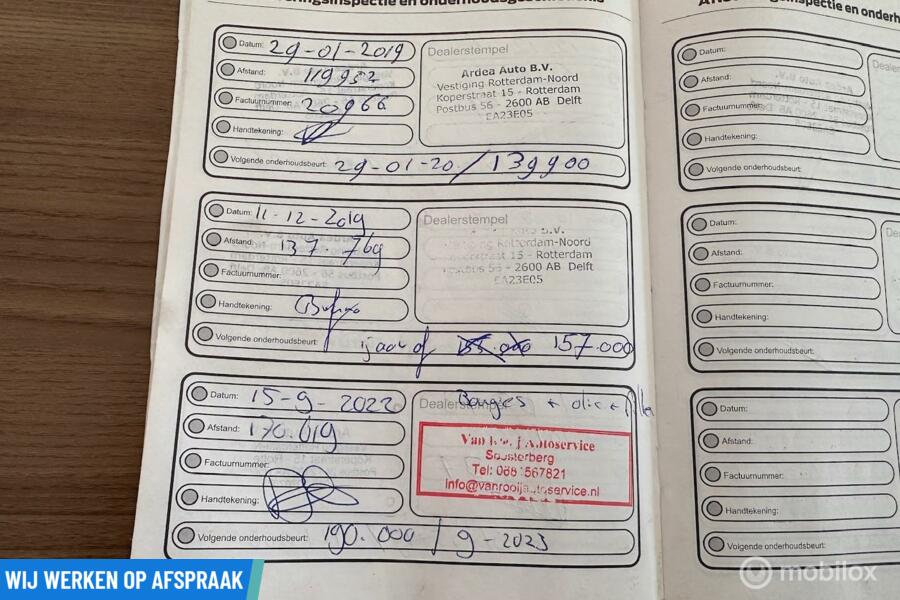 Datum: 29-01-2019
Afstand: 119932
Factuurnummer: 20966
Handtekening:
Volgende onderhoudsbeurt: 29-01-20 / 139900
Dealerstempel
Ardea Auto B.V.
Vestiging Rotterdam-Noord
Koperstraat 15 - Rotterdam
Postbus 56 - 2600 AB Delft
EA23E05
Datum: 11-12-2019
Afstand: 137.769
Factuurnummer:
Handtekening:
Volgende onderhoudsbeurt: 1 jaar of 157.000
Dealerstempel
B.V.
Rotterdam-Noord
15 - Rotterdam
56 - 2600 AB Delft
EA23E05
Datum: 15-9-2022
Afstand: 170.019
Factuurnummer:
Handtekening:
Volgende onderhoudsbeurt: 190.000 / 9-2023
Dealerstempel Bougies + olie +
Van Autoservice
Soesterberg
Tel: 088 567821
Info@vanrooijautoservice.nl
Datum:
Afstand:
Factuurnummer:
Handtekening:
Volgende onderhoudsbeurt:
Datum:
Afstand:
Factuurnummer:
Handtekening:
Volgende onderhoudsbeurt:
Datum:
Afstand:
Factuurnummer:
Handtekening:
Volgende onderhoudsbeurt:
WIJ WERKEN OP AFSPRAAK
mobilox